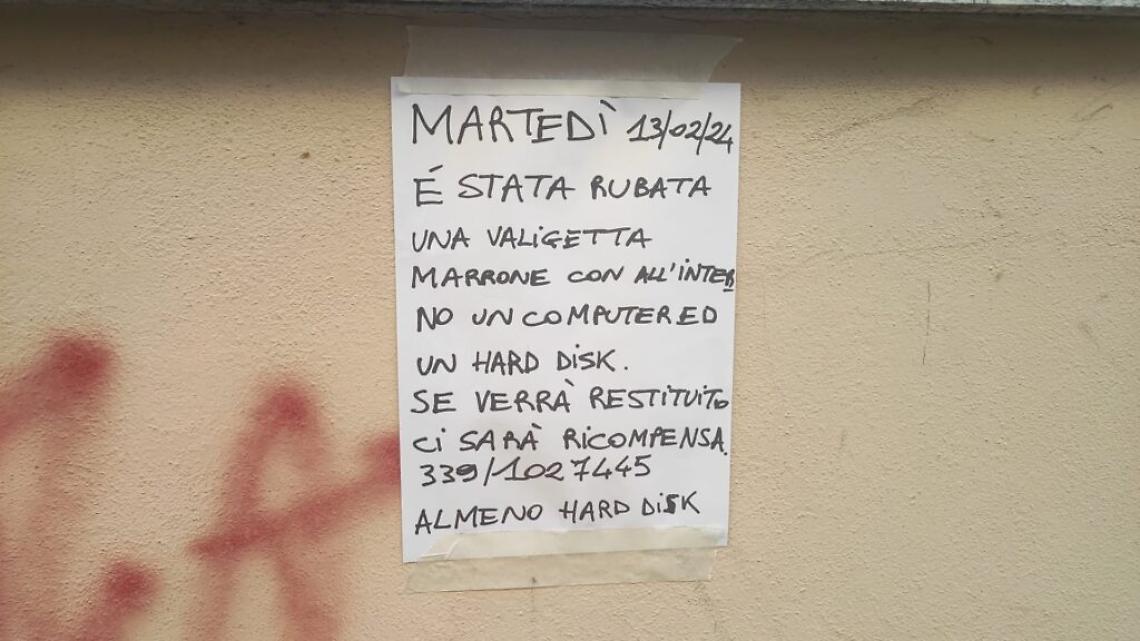 MARTEDÌ 13/02/24
É STATA RUBATA
UNA VALIGETTA
MARRONE CON ALL'INTER
NO UN COMPUTER ED
UN HARD DISK.
SE VERRÀ RESTITUITO
CI SARÀ RICOMPENSA.
339/1027445
ALMENO HARD DISK